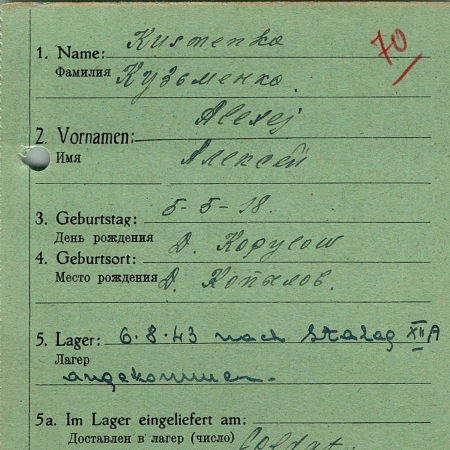 70
1. Name: Kusmenko
Фамилия Кузьменко.
2. Vornamen: Alexej
Имя Алексей
3. Geburtstag: 5-5-18.
День рождения
4. Geburtsort: D.
Место рождения Д. Копылов.
5. Lager: 6.8.43 nach Stalag XII A
Лагер angekommen.
5a. Im Lager eingeliefert am:
Доставлен в лагер (число) Soldat.